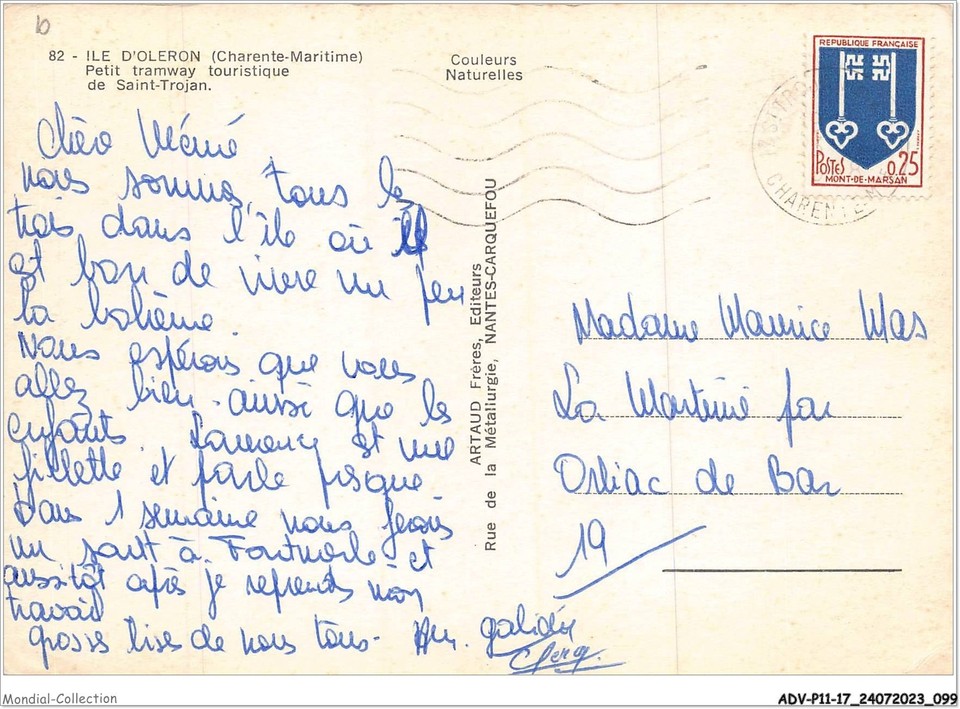 82 - ILE D'OLERON (Charente-Maritime)
Petit tramway touristique
de Saint-Trojan.
Couleurs
Naturelles
REPUBLIQUE FRANÇAISE
POSTES 0,25
MONT-DE-MARSAN
CHARENTE
Chère Mémé
nous sommes tous les
trois dans l'île où il
est bon de vivre un peu
la bohème.
Nous espérons que vous
allez bien. ainsi que les
enfants. est une
fillette et parle presque
Dans 1 semaine nous ferons
un saut à et
aussitôt après je reprends mon
travail
grosses bises de nous tous.
ARTAUD Frères, Editeurs
Rue de la Métallurgie, NANTES-CARQUEFOU
Madame Maurice Mas
La par
Orliac de Bar
19
Mondial-Collection
ADV-P11-17_24072023_099